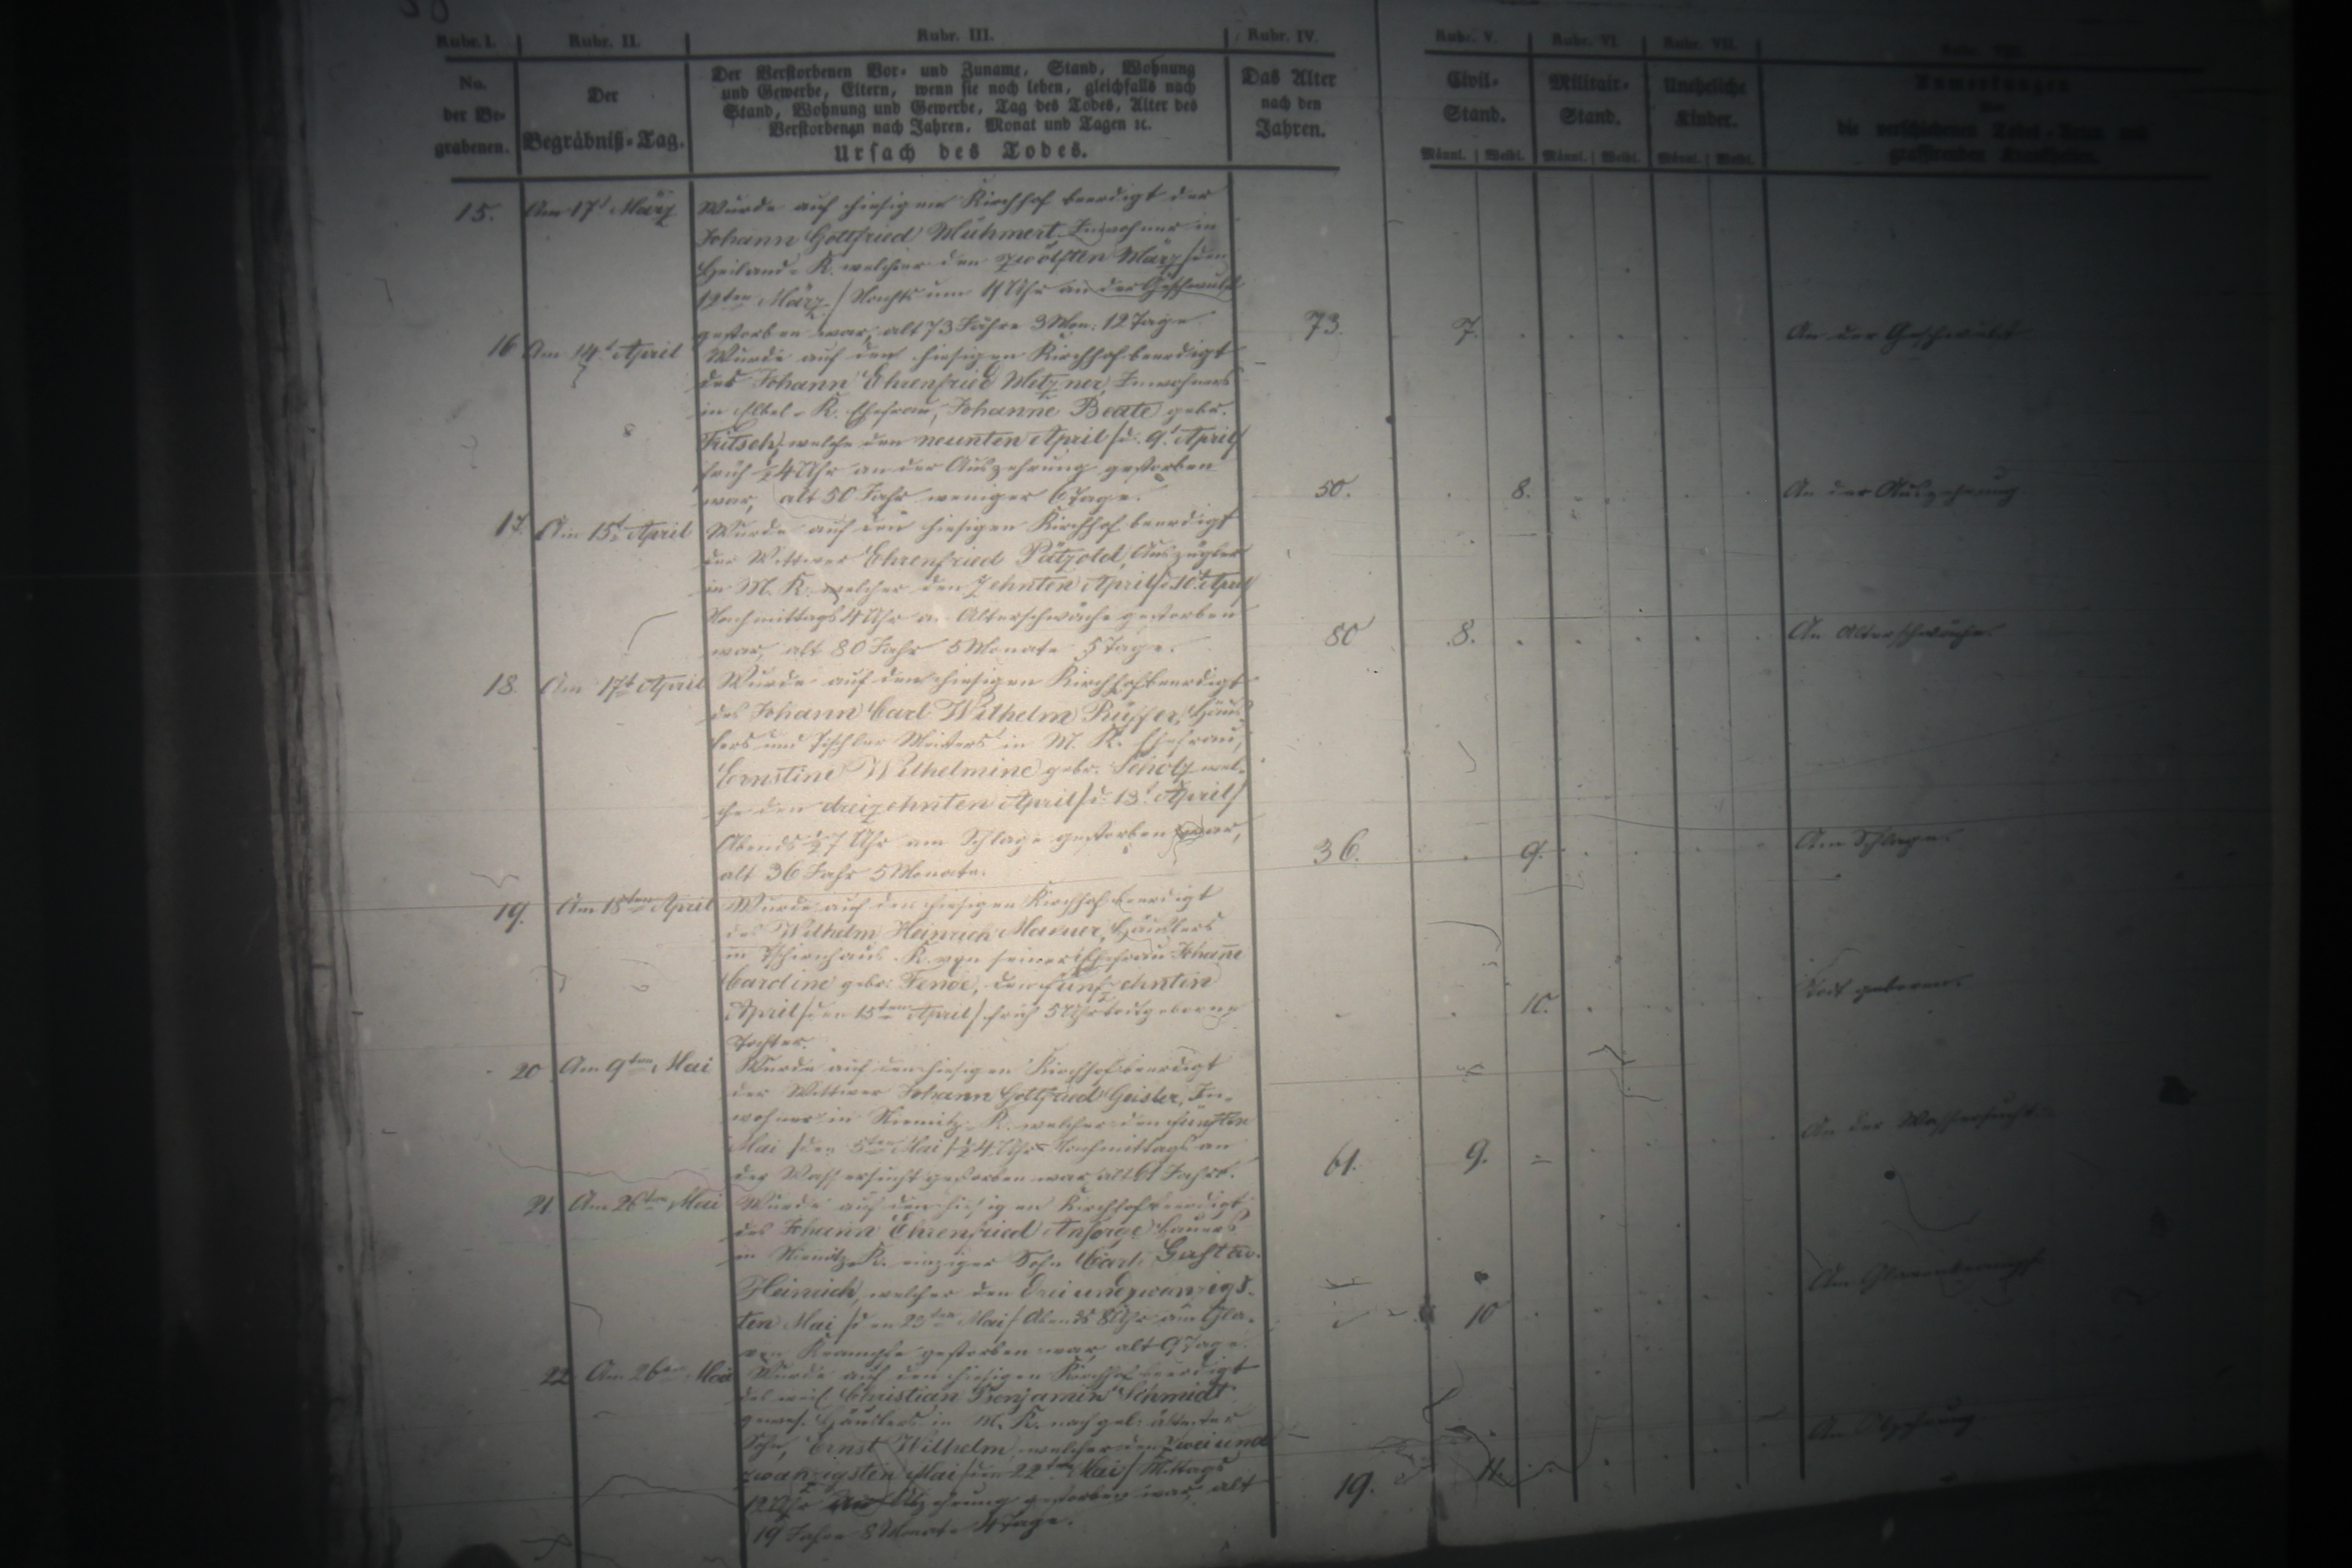 Rubr. I. Rubr. II. Rubr. III. Rubr. IV. Rubr. V. Rubr. VI. Rubr. VII.
No. der Begrabenen.
Der Begräbniß-Tag.
Der Verstorbenen Vor- und Zuname, Stand, Wohnung
und Gewerbe, Eltern, wenn sie noch leben, gleichfalls nach
Stand, Wohnung und Gewerbe, Tag des Todes, Alter des
Verstorbenen nach Jahren, Monat und Tagen ꝛc.
Ursach des Todes.
Das Alter
nach den
Jahren.
Civil-
Stand.
Militair-
Stand.
Uneheliche
Kinder.
Anmerkungen
die verschiedenen Todes-Arten und
grassirenden Krankheiten.
Männl. Weibl. Männl. Weibl. Männl. Weibl.
15. Am 17t März Wurde auf hiesigem Kirchhof beerdigt der
Johann Gottfried Mühmert Inwohner in
Heiland-K. welcher den zwölften März /den
12ten März/ Nachts um 11 Uhr an der Geschwulst
gestorben war, alt 73 Jahre 3 Mon. 12 Tage. 73. 7. An der Geschwulst
16 Am 14t April Wurde auf dem hiesigen Kirchhof beerdigt
des Johann Ehrenfried Metzner, Inwohners
in K. Ehefrau, Johanne Beate gebr.
welche den neunten April /d. 9t April/
früh ½4 Uhr an der Auszehrung gestorben
war, alt 50 Jahr weniger 6 Tage. 50. 8. An der Auszehrung
17. Am 15t April Wurde auf dem hiesigen Kirchhof beerdigt
der Wittwer Ehrenfried Pätzold, Auszügler
in M. K. welcher den zehnten April /d. 10t April
Nachmittags 4 Uhr an Alterschwäche gestorben
war, alt 80 Jahr 5 Monate 5 Tage. 80 8. An Altersschwäche.
18. Am 17t April Wurde auf dem hiesigen Kirchhof beerdigt
des Johann Carl Wilhelm Häus-
lers und Tischler Meisters in M. K. Ehefrau,
Ernstine Wilhelmine gebr. Scholz wel-
che den dreizehnten April /d. 13t April/
Abends ½7 Uhr am Schlage gestorben war,
alt 36 Jahr 5 Monate. 36. 9. Am Schlage.
19. Am 18ten April Wurde auf dem hiesigen Kirchhof beerdigt
des Wilhelm Heinrich Häuslers
in Tschirnhaus-K. von seiner Ehefrau Johane
Caroline gebr. den fünfzehnten
April /den 15ten April/ früh 5 Uhr todtgeborne
Tochter. 10. Todt geboren.
20 Am 9ten Mai Wurde auf dem hiesigen Kirchhof beerdigt
der Wittwer Johann Gottfried Geisler, In-
wohner in Niemitz-K. welcher den fünften
Mai /den 5ten Mai/ ½4 Uhr Nachmittags an
der Wassersucht gestorben war, alt 61 Jahre. 61. 9. An der Wassersucht
21. Am 26ten Mai Wurde auf dem hiesigen Kirchhof beerdigt
des Johann Ehrenfried Ansorge Bauers
in Niemitz-K. einziger Sohn Carl Gustav
Heinrich, welcher den dreiundzwanzigs-
ten Mai /den 23ten Mai/ Abends 8 Uhr am
Krampfe gestorben war, alt 9 Tage. 10
22 Am 26ten Mai Wurde auf dem hiesigen Kirchhof beerdigt
des weil. Christian Benjamin Schmidt
gewes. Häuslers in M. K. nachgel. ältester
Sohn, Ernst Wilhelm, welcher den zweiund
zwanzigsten Mai /den 22ten Mai/ Mittags
12 Uhr an Abzehrung gestorben war, alt
19 Jahre 8 Monate 4 Tage. 19. 11. An Abzehrung